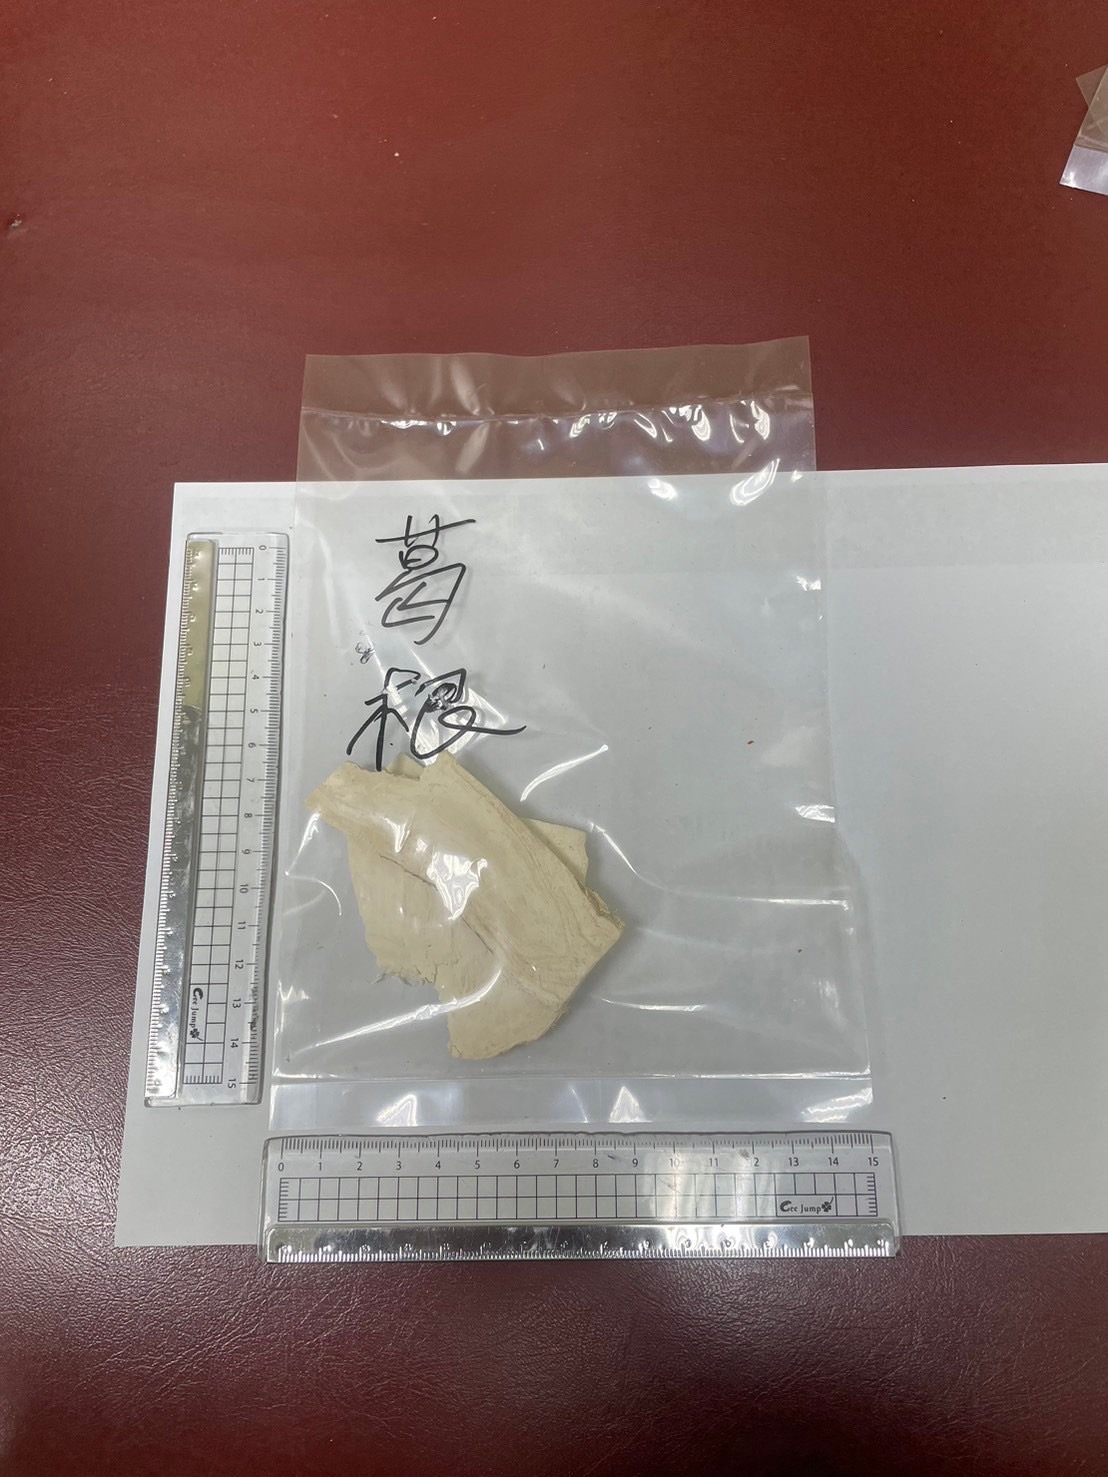 葛
根
0 1 2 3 4 5 6 7 8 9 10 11 12 13 14 15
Cee Jump
0 1 2 3 4 5 6 7 8 9 10 11 12 13 14 15
Cee Jump